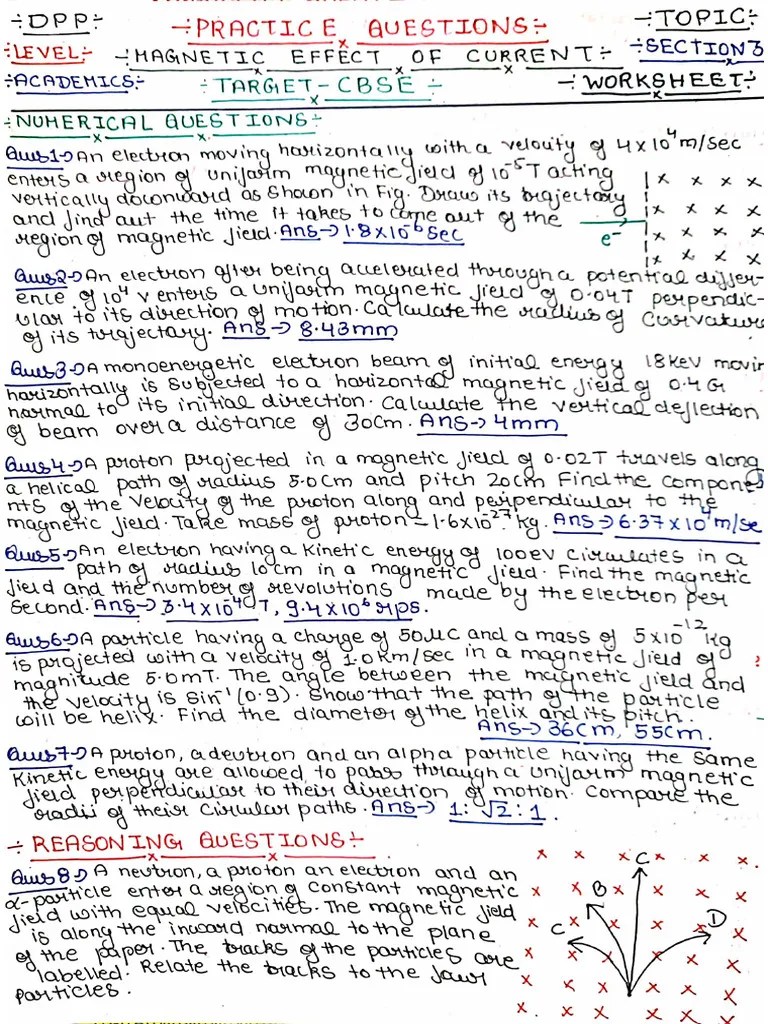 ÷DPP÷ ÷PRACTICE QUESTIONS÷ ÷TOPIC÷
÷LEVEL÷ ÷MAGNETIC EFFECT OF CURRENT÷ ÷SECTION 3
÷ACADEMICS÷ ÷TARGET-CBSE÷ ÷WORKSHEET÷
÷NUMERICAL QUESTIONS÷
Ques1-) An electron moving horizontally with a velocity of 4×10⁴m/sec
enters a region of uniform magnetic field of 10⁻⁵T acting
vertically downward as shown in Fig. Draw its trajectory
and find out the time it takes to come out of the
region of magnetic field. Ans-) 1.8×10⁻⁶ Sec
e⁻
Ques2-) An electron after being accelerated through a potential differ-
ence of 10⁴ v enters a uniform magnetic field of 0.04T perpendic-
ular to its direction of motion. Calculate the radius of curvature
of its trajectory. Ans-) 8.43mm
Ques3-) A monoenergetic electron beam of initial energy 18kev movin
horizontally is subjected to a horizontal magnetic field of 0.4G
normal to its initial direction. Calculate the vertical deflection
of beam over a distance of 30cm. Ans-) 4mm
Ques4-) A proton projected in a magnetic field of 0.02T travels along
a helical path of radius 5.0cm and pitch 20cm Find the compone
nts of the velocity of the proton along and perpendicular to the
magnetic field. Take mass of proton = 1.6×10⁻²⁷kg. Ans-) 6.37×10⁴m/se
Ques5-) An electron having a kinetic energy of 100ev circulates in a
path of radius 10cm in a magnetic field. Find the magnetic
field and the number of revolutions made by the electron per
second. Ans-) 3.4×10⁻⁴T, 9.4×10⁶ rps.
Ques6-) A particle having a charge of 50μC and a mass of 5×10⁻¹² kg
is projected with a velocity of 1.0km/sec in a magnetic field of
magnitude 5.0mT. The angle between the magnetic field and
the velocity is Sin⁻¹(0.9). Show that the path of the particle
will be helix. Find the diameter of the helix and its pitch.
Ans-) 36cm, 55cm.
Ques7-) A proton, a deutron and an alpha particle having the same
kinetic energy are allowed to pass through a uniform magnetic
field perpendicular to their direction of motion. Compare the
radii of their circular paths. Ans-) 1:√2:1.
÷REASONING QUESTIONS÷
Ques8-) A neutron, a proton an electron and an
α-particle enter a region of constant magnetic
field with equal velocities. The magnetic field
is along the inward normal to the plane
of the paper. The tracks of the particles are
labelled. Relate the tracks to the four
particles.
C
B
C
D